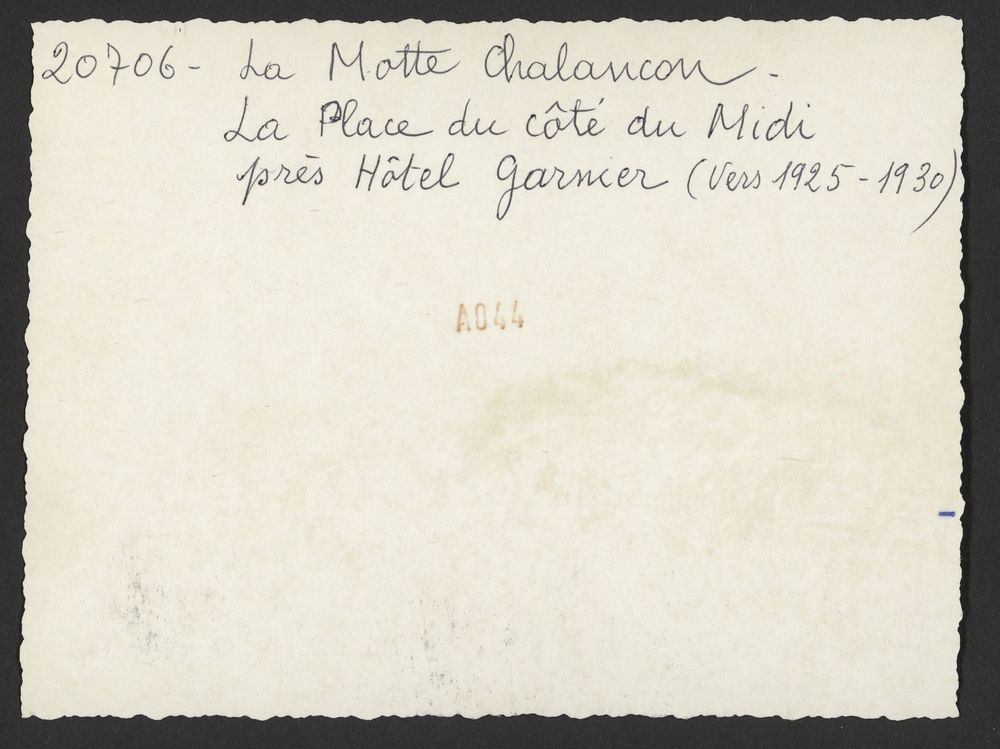 20706 - La Motte Chalancon -
La Place du côté du Midi
près Hôtel Garnier (Vers 1925 - 1930)
A044